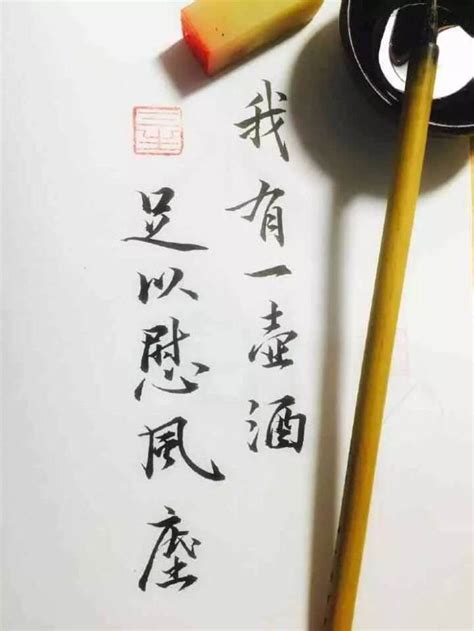 我有一壺酒
足以慰風塵